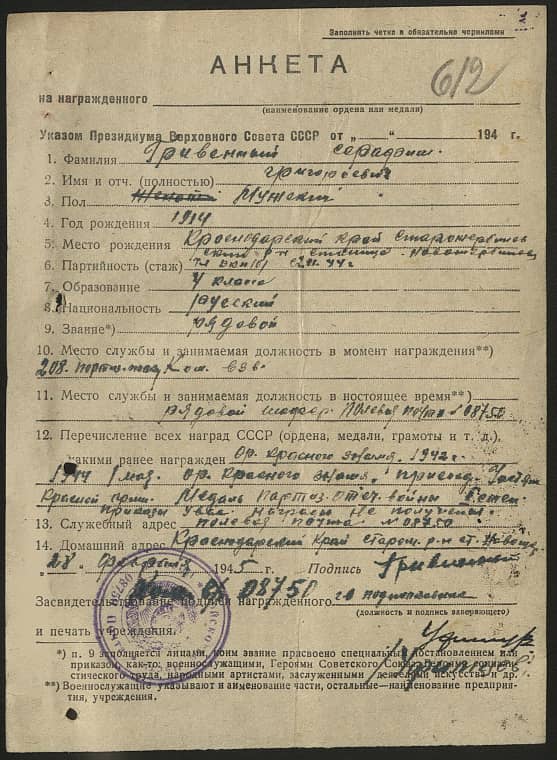 Заполнять четко и обязательно чернилами
2
АНКЕТА
612
на награжденного
(наименование ордена или медали)
Указом Президиума Верховного Совета СССР от „ “ 194 г.
1. Фамилия Гривенный Серафим
2. Имя и отч. (полностью) Григорьевич
3. Пол Женский Мужской
4. Год рождения 1914
5. Место рождения Краснодарский край Старощербинов
ский р-н станица Новощербинов
6. Партийность (стаж) ВКП(б) 44 г
7. Образование 4 класса
8. Национальность Русский
9. Звание*) рядовой
10. Место службы и занимаемая должность в момент награждения**)
208. Ком. взв.
11. Место службы и занимаемая должность в настоящее время**)
рядовой шофер. Полевая почта № 08750
12. Перечисление всех наград СССР (ордена, медали, грамоты и т. д.),
какими ранее награжден Ор. Красного знамя. 1942г.
1944 1 мая. ор. Красного знамя.
Красной Медаль Партиз. отеч. войны
приказы Награды не получены.
13. Служебный адрес полевая почта № 08750
14. Домашний адрес Краснодарский край Старощ. р-н ст. Новощ.
„28“ февраля 1945 г. Подпись Гривенный
08750
Засвидетельствование подписи награжденного подполковник
(должность и подпись заверяющего)
и печать учреждения.
*) п. 9 заполняется лицами, коим звание присвоено специальным постановлением или
приказом, как-то: военнослужащими, Героями Советского Союза, Героями социалис-
тического труда, народными артистами, заслуженными деятелями искусства и др.
**) Военнослужащие указывают наименование части, остальные—наименование предприя-
тия, учреждения.